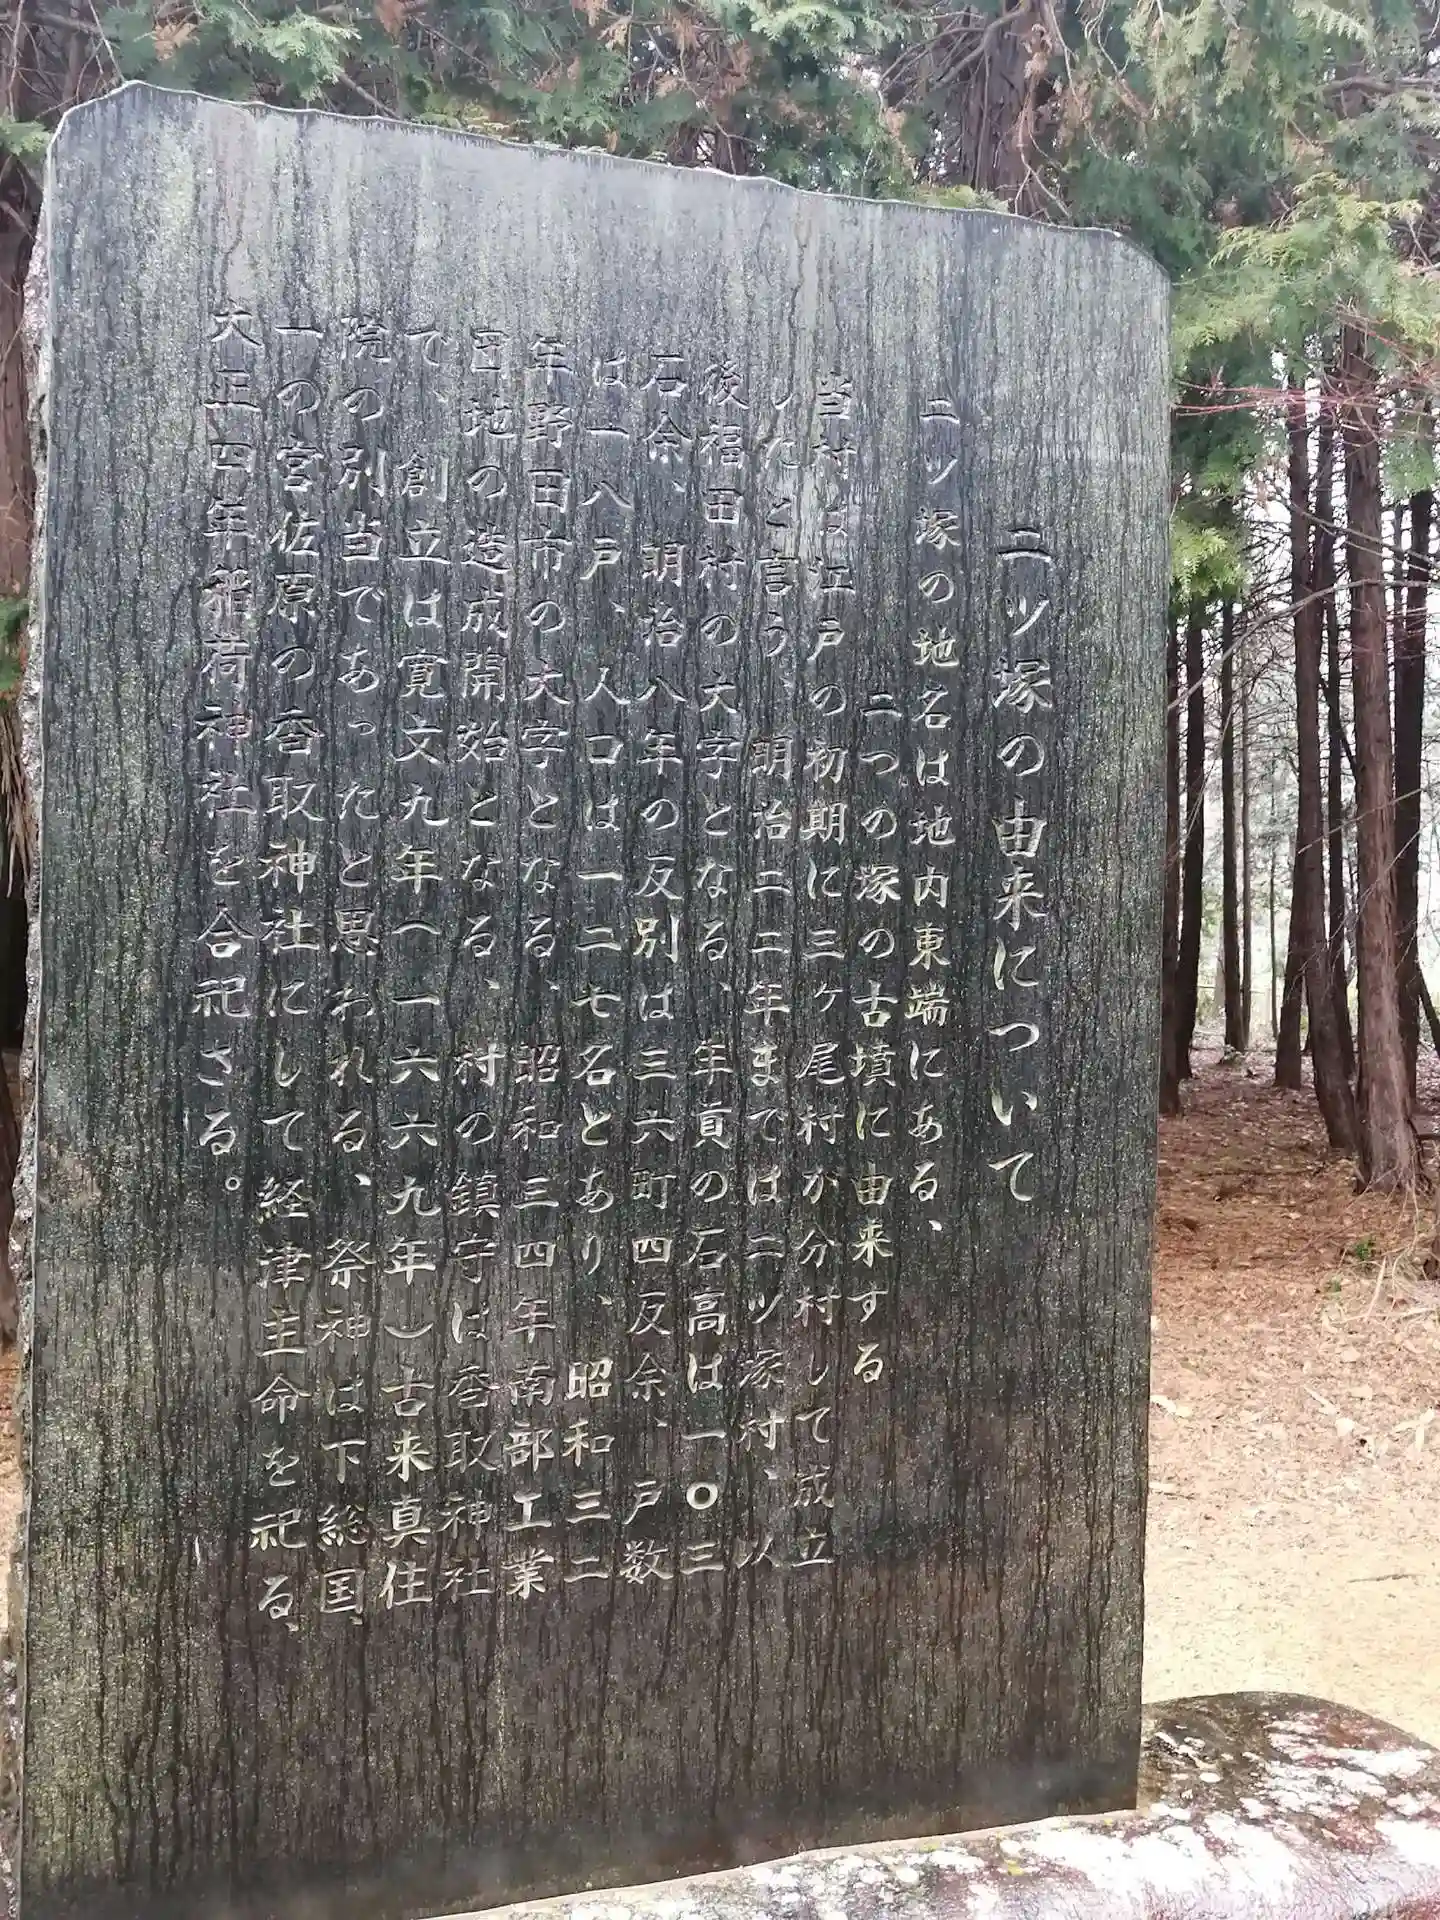 二ツ塚の由来について
二ツ塚の地名は地内東端にある、
二つの塚の古墳に由来する
当村は江戸の初期に三ヶ尾村が分村して成立
したと言う、明治二二年までは二ツ塚村、以
後福田村の大字となる、年貢の石高は一〇三
石余、明治八年の反別は三六町四反余、戸数
は一八戸、人口は一二七名とあり、昭和三二
年野田市の大字となる、昭和三四年南部工業
団地の造成開始となる、村の鎮守は香取神社
で、創立は寛文九年(一六六九年)古来真住
院の別当であったと思われる、祭神は下総国、
一の宮佐原の香取神社にして経津主命を祀る、
大正四年稲荷神社を合祀さる。